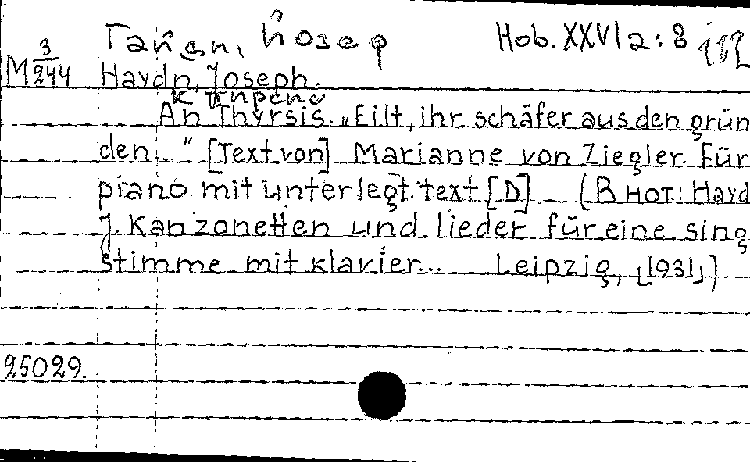 Гайдн, Йосеф Hob. XXVIa: 8
M 3/244 Haydn, Joseph.
К Тирсис
An Thyrsis. „Eilt, ihr schäfer aus den grün
den. " [Text von] Marianne von Ziegler für
piano mit unterlegt. text [D] (В нот: Hayd
J. Kanzonetten und lieder für eine sing
stimme mit klavier.. Leipzig, [1931])
25029.